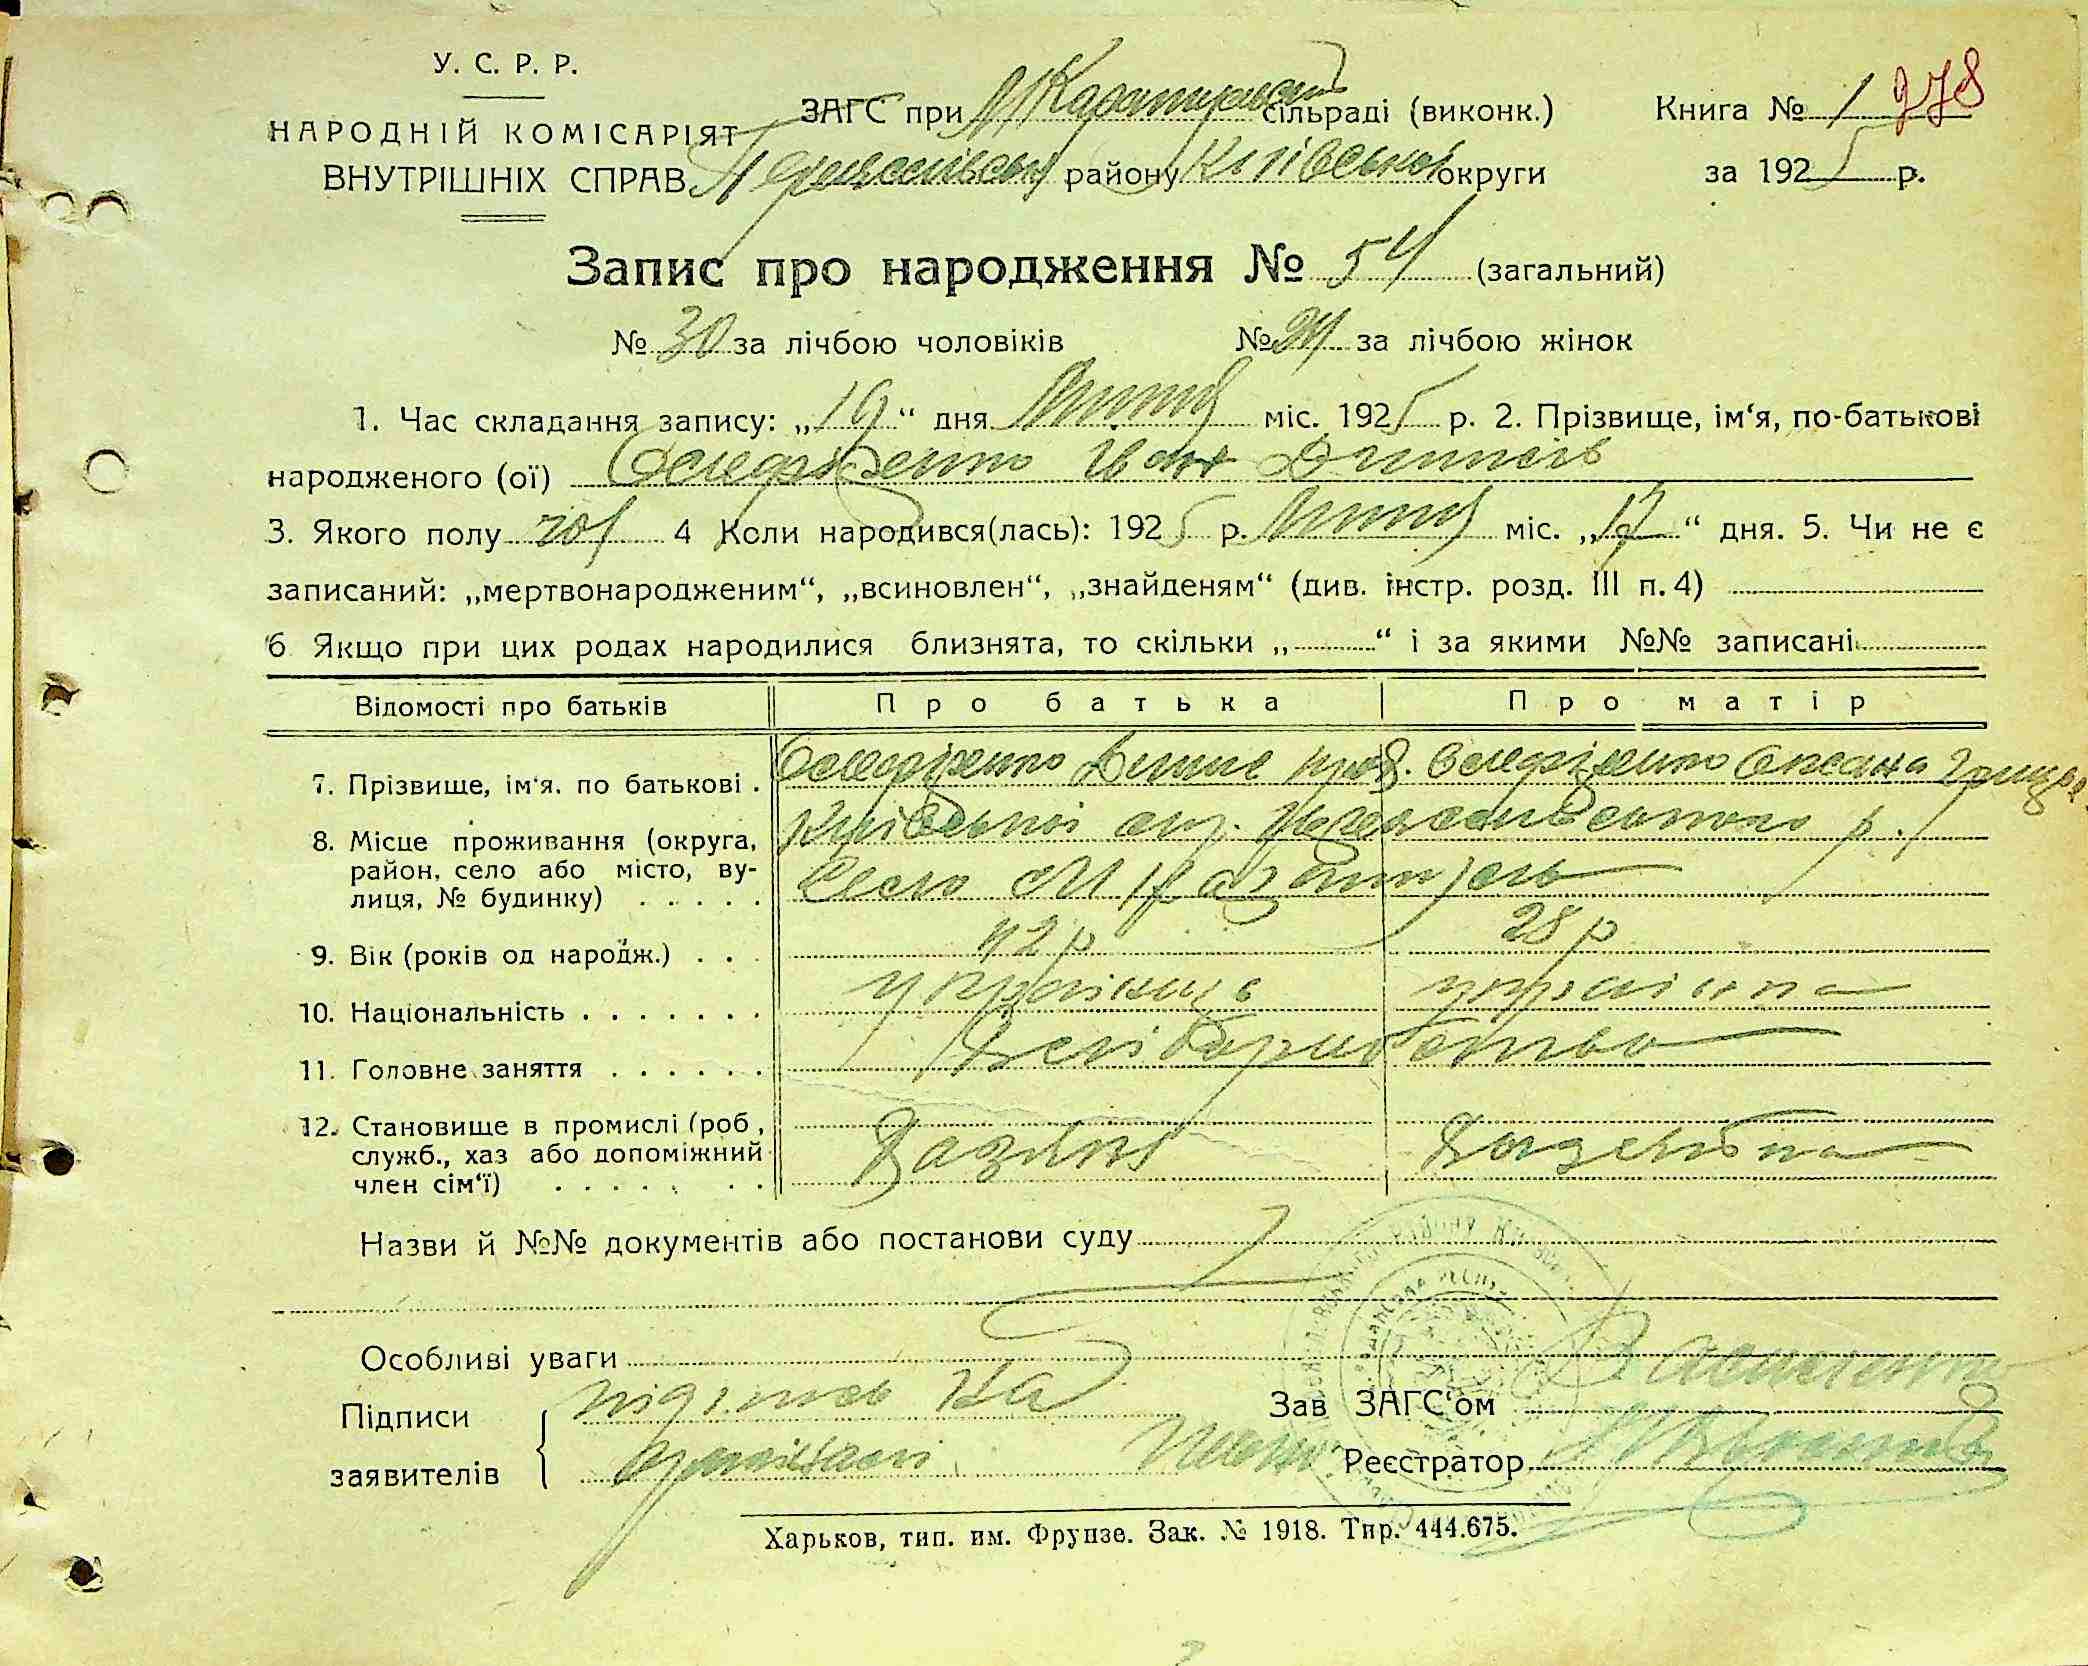 У. С. Р. Р.
НАРОДНІЙ КОМІСАРІЯТ
ВНУТРІШНІХ СПРАВ
ЗАГС при М Каратульській сільраді (виконк.)
Переяслівськ району Київської округи
Книга № 1 278
за 1925 р.
Запис про народження № 54 (загальний)
№ 30 за лічбою чоловіків № 24 за лічбою жінок
1. Час складання запису: „19“ дня Липня міс. 1925 р. 2. Прізвище, ім‘я, по-батькові
народженого (ої) Іван
3. Якого полу чол 4 Коли народився(лась): 1925 р. Липня міс. „17“ дня. 5. Чи не є
записаний: „мертвонародженим“, „всиновлен“, „знайденям“ (див. інстр. розд. III п. 4)
6 Якщо при цих родах народилися близнята, то скільки „ “ і за якими №№ записані
Відомості про батьків Про батька Про матір
7. Прізвище, ім‘я. по батькові .
8. Місце проживання (округа, Київської окр. Переяславського р.
район, село або місто, ву- Село М Каратуль
лиця, № будинку) . . . . .
9. Вік (років од народж.) . . . 42 р 28 р
10. Національність . . . . . . . українець українка
11. Головне заняття . . . . . . Хліборобство
12. Становище в промислі (роб,
служб., хаз або допоміжний Хазяїн Хазяйка
член сім‘ї) . . . . . . .
Назви й №№ документів або постанови суду
Особливі уваги
Підписи підпись на
заявителів оригіналі
Зав ЗАГС‘ом Василенко
Реєстратор
Харьков, тип. им. Фрунзе. Зак. № 1918. Тир. 444.675.